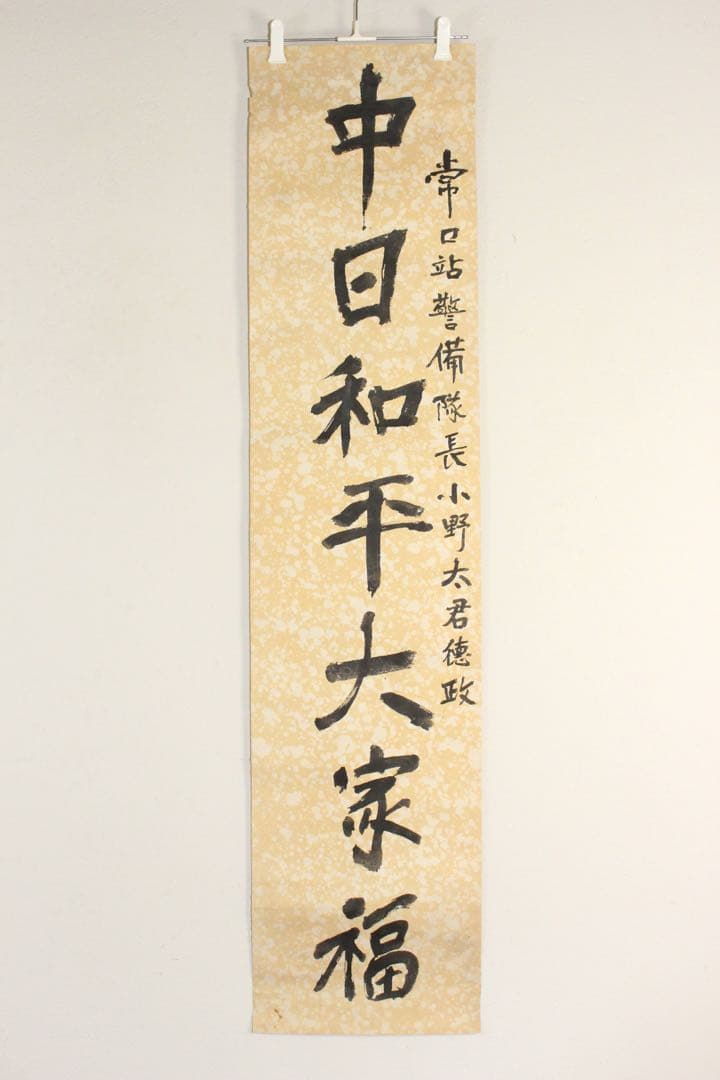 常口站警備隊長小野太君德政
中日和平大家福